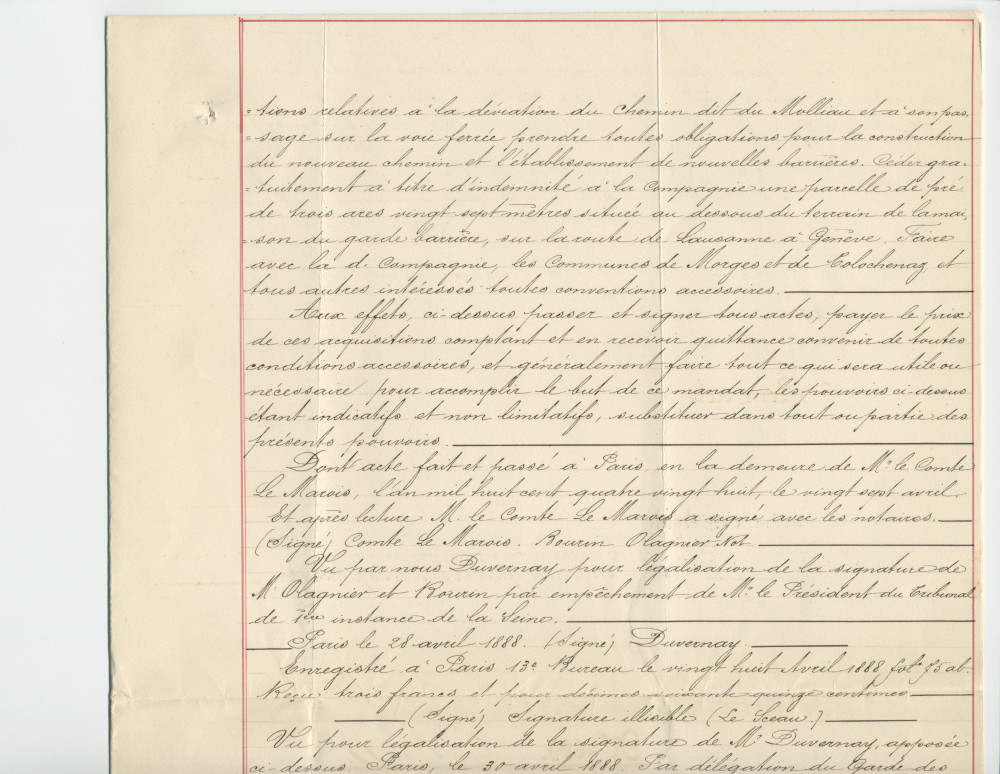 =tions relatives à la déviation du Chemin dit du Molliau et à son pas,
=sage sur la voie ferrée prendre toutes obligations pour la construction
du nouveau chemin et l'établissement de nouvelles barrières. Céder gra-
=tuitement à titre d'indemnité à la Compagnie une parcelle de pré
de trois ares vingt sept mètres située au dessous du terrain de la mai,
=son du garde barrière, sur la route de Lausanne à Genève. Faire
avec la d. Compagnie, les Communes de Morges et de Tolochenaz et
tous autres intéressés toutes conventions accessoires.
Aux effets, ci-dessus passer et signer tous actes, payer le prix
de ces acquisitions comptant et en recevoir quittance convenir de toutes
conditions accessoires, et généralement faire tout ce qui sera utile ou
nécessaire pour accomplir le but de ce mandat, les pouvoirs ci-dessus
étant indicatifs et non limitatifs, substituer dans tout ou partie des
présents pouvoirs.
Dont acte fait et passé à Paris, en la demeure de Mr le Comte
Le Marois, l'an mil huit cent quatre vingt huit, le vingt sept avril,
Et après lecture M. le Comte Le Marois a signé avec les notaires.
(Signé) Comte Le Marois. Bourin Olagnier Not.
Vu par nous Duvernay pour légalisation de la signature de
M. Olagnier et Bourin par empêchement de Mr. le Président du Tribunal
de 1ère instance de la Seine.
Paris le 28 avril 1888. (Signé) Duvernay.
Enregistré à Paris 13e Bureau le vingt huit Avril 1888, fol°
Reçu trois francs et pour décimes soixante quinze centimes
(Signé) Signature illisible (Le Sceau.)
Vu pour légalisation de la signature de Mr Duvernay, apposée
ci-dessus. Paris, le 30 avril 1888. Par délégation du Garde des